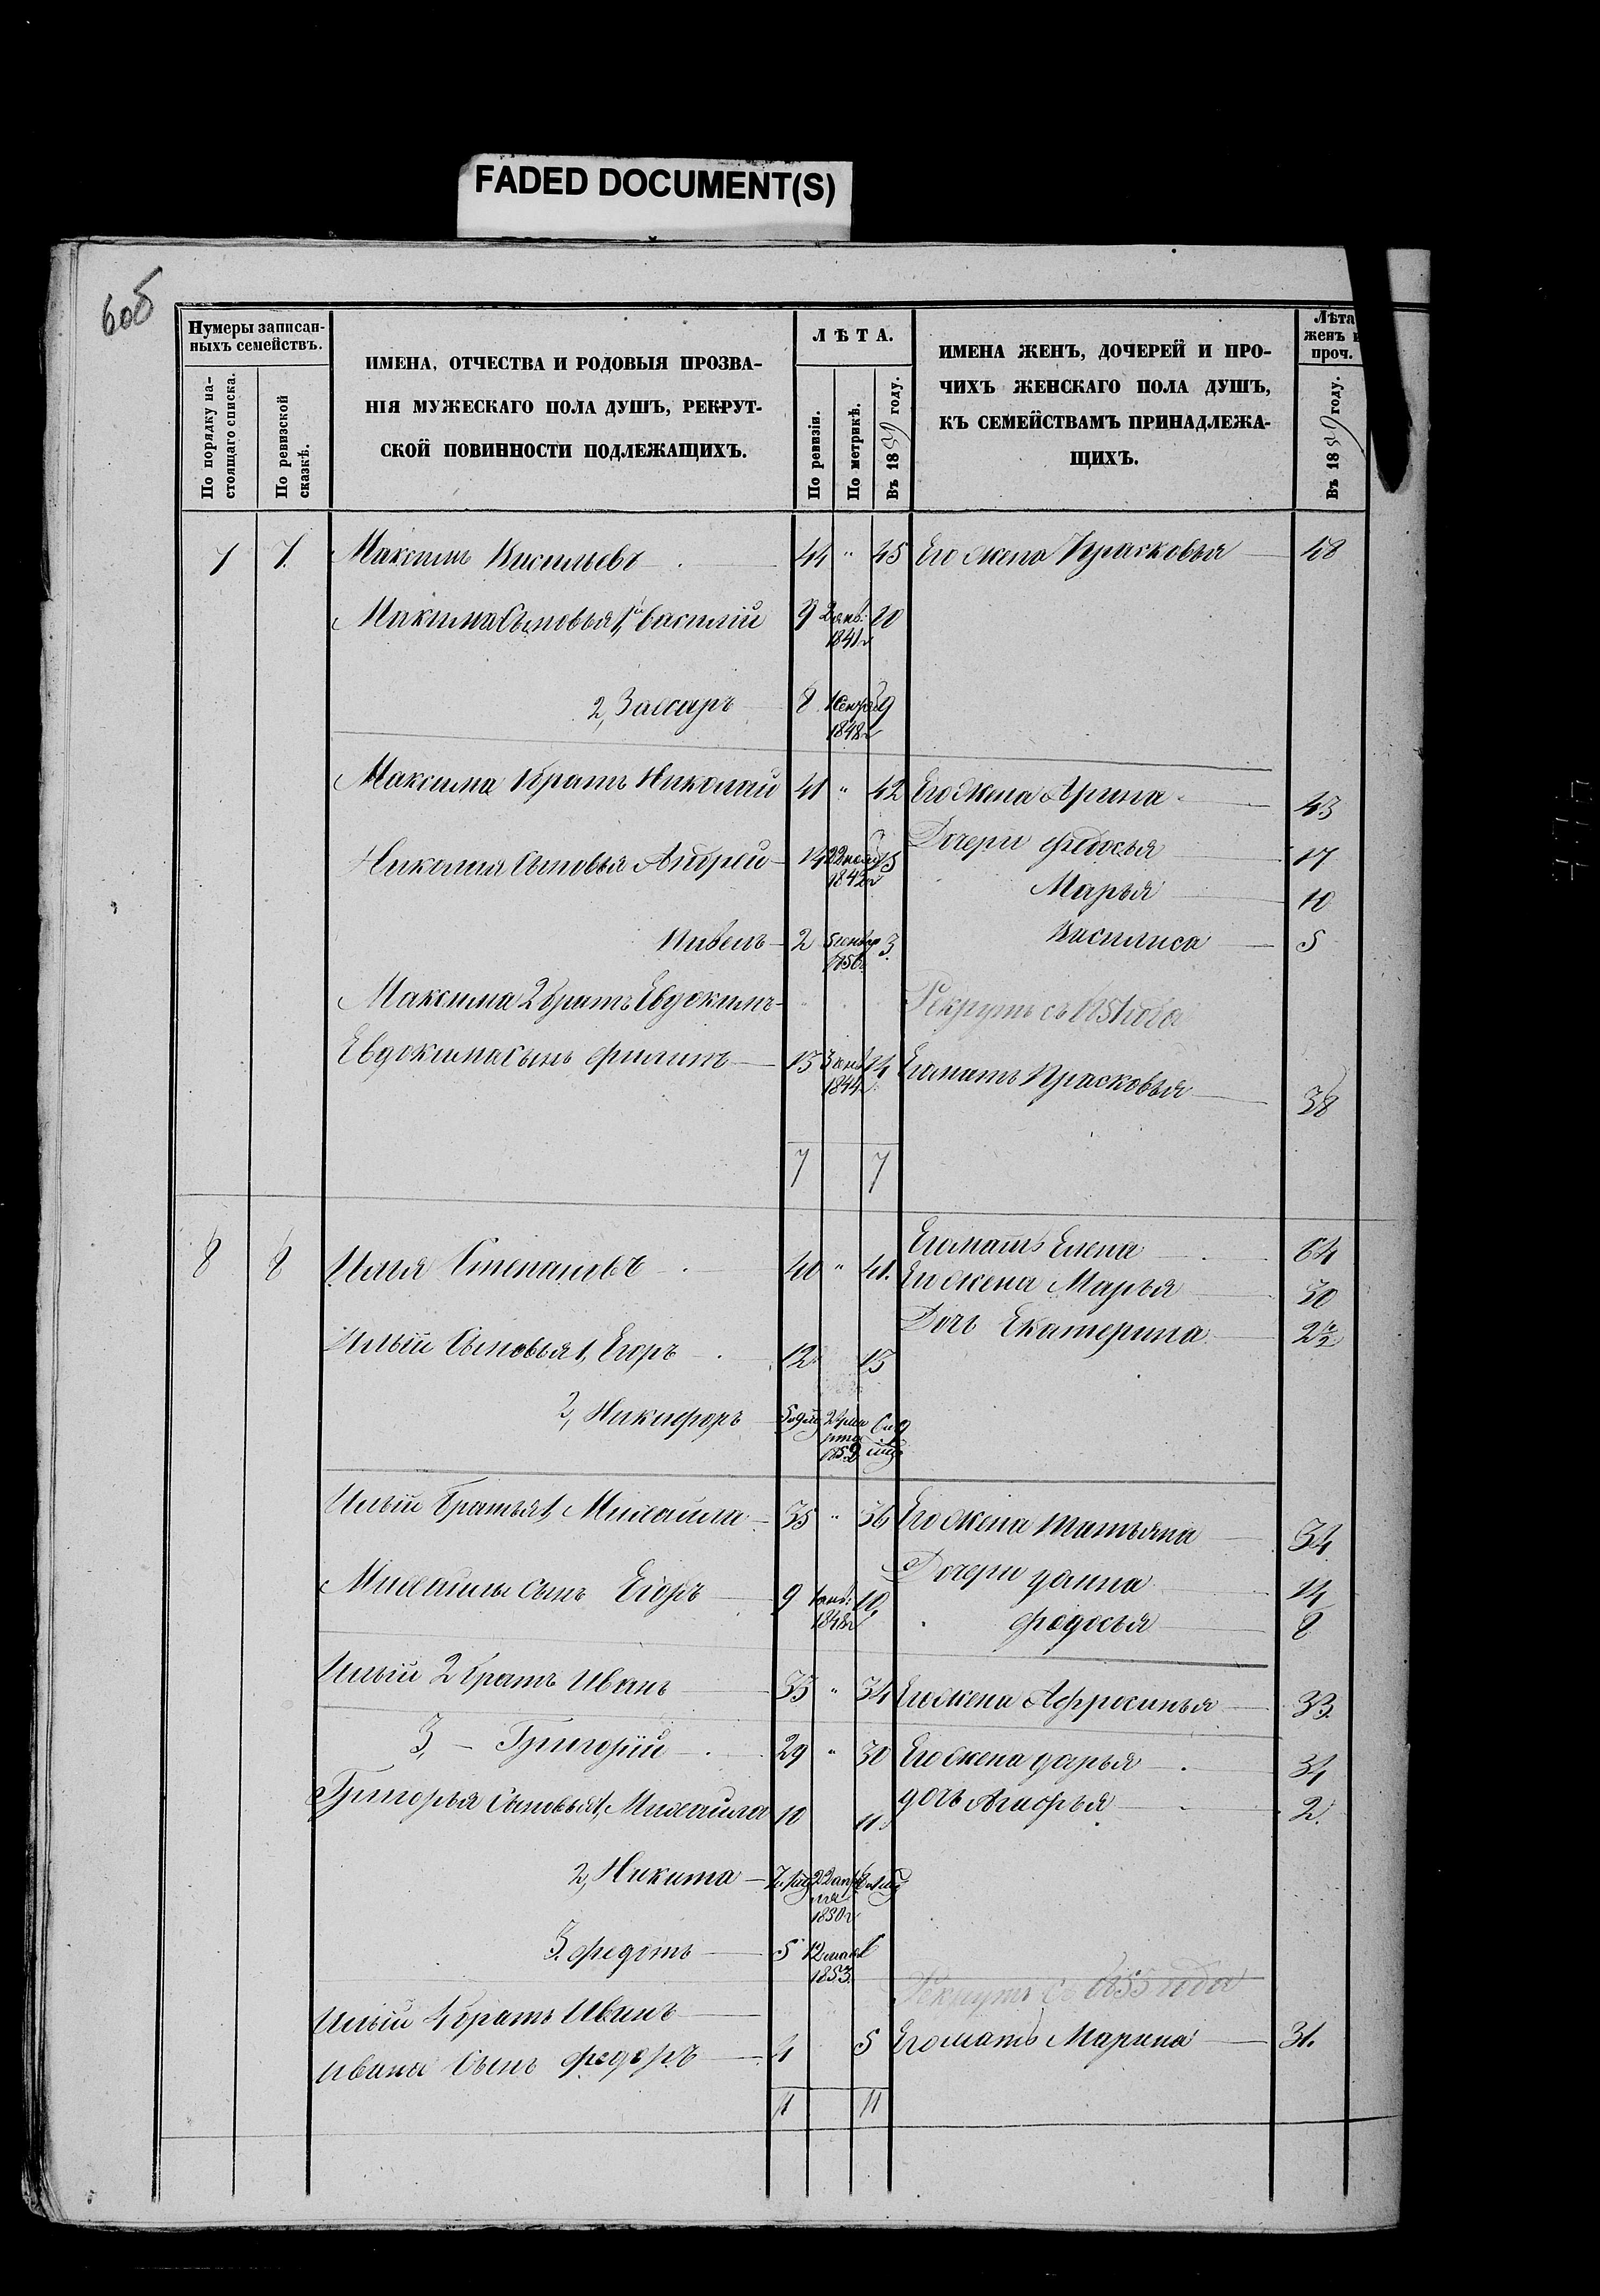 FADED DOCUMENT(S)
6об
Нумеры записан-
ныхъ семействъ.
По порядку на-
стоящаго списка.
По ревизской
сказкѣ.
ИМЕНА, ОТЧЕСТВА И РОДОВЫЯ ПРОЗВА-
НІЯ МУЖЕСКАГО ПОЛА ДУШЪ, РЕКРУТ-
СКОЙ ПОВИННОСТИ ПОДЛЕЖАЩИХЪ.
ЛѢТА.
По ревизіи.
По метрикѣ.
Въ 1859 году.
ИМЕНА ЖЕНЪ, ДОЧЕРЕЙ И ПРО-
ЧИХЪ ЖЕНСКАГО ПОЛА ДУШЪ,
КЪ СЕМЕЙСТВАМЪ ПРИНАДЛЕЖА-
ЩИХЪ.
Лѣта
женъ и
проч.
Въ 1859 году.
7 7. Максимъ Васильевъ 44 " 45 Его жена Прасковья 48
Максима Сыновья 1й Василій 9 2 янв: 10
1841г
2, Захаръ 8 9
1848г
Максима братъ Николай 41 " 42 Его жена Арина 43
Николая Сыновья Андрей 14 22 15 Дочери Федосья 17
1842г
Марья 10
Павелъ 2 3. Василиса 5
Максима 2 братъ Евдокимъ Рекрутъ съ 1851 года
Евдокима Сынъ Филипъ 13 3 янв 14 Его мать Прасковья 38
1844г
7 7
8 8 Илья Степановъ 40 " 41. Его мать Елена 64
Его жена Марья 30
Дочь Екатерина 2½
Ильи Сыновья 1, Егоръ 12 13
2, Никифоръ
Ильи братья 1, Михайла 35 " 36 Его жена Татьяна 34
Дочери Данна 14
Михайлы сынъ Егоръ 9 1 янв: 10,
1848г
Федосья 8
Ильи 2 братъ Иванъ 33 " 34 Его жена Афросинья 33.
3, — Григорій 29 " 30 Его жена Дарья 34
Григорья Сыновья 1, Михайла 10 11. дочь Агафья 2.
2, Никита 22 апре
ля
1850г
3. Федотъ 5 12 мая 6
1853.
Рекрутъ съ 1855 года
Ильи 4 братъ Иванъ
Ивана Сынъ Федоръ 4 5 Его мать Марина 31.
11 11